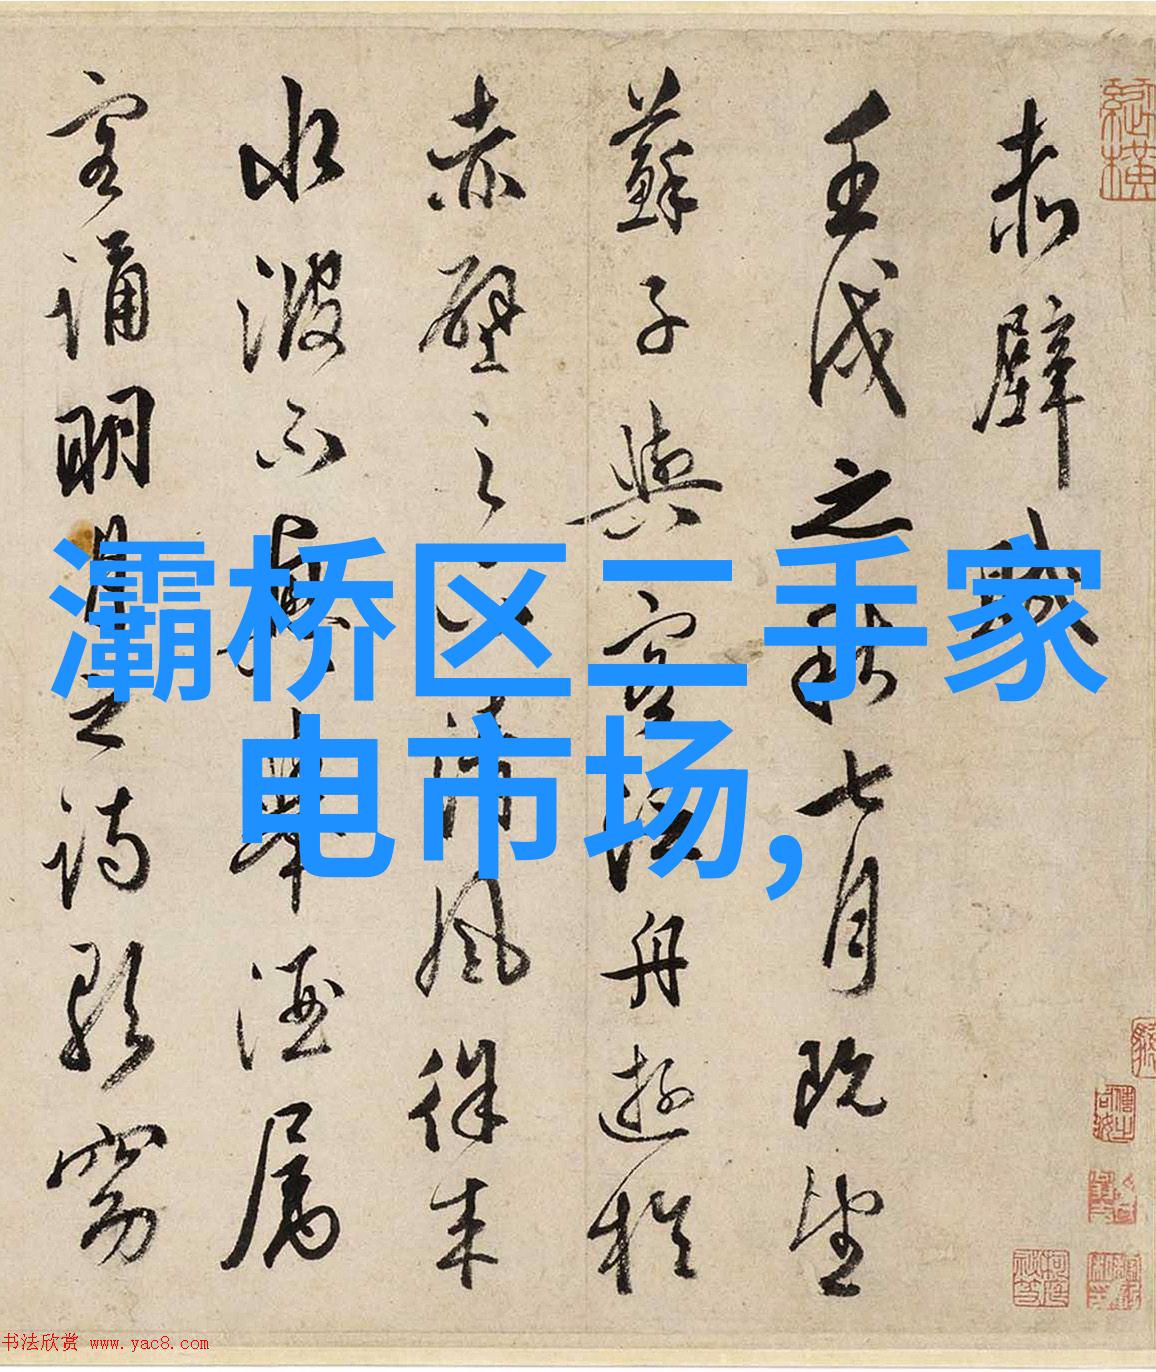 赤壁賦
壬戌之秋七月既望
蘇子與客泛舟遊於
赤壁之下清風徐來
水波不興舉酒屬
客誦明月之詩歌窈
灞桥区二手家
电市场,
书法欣赏 www.yac8.com